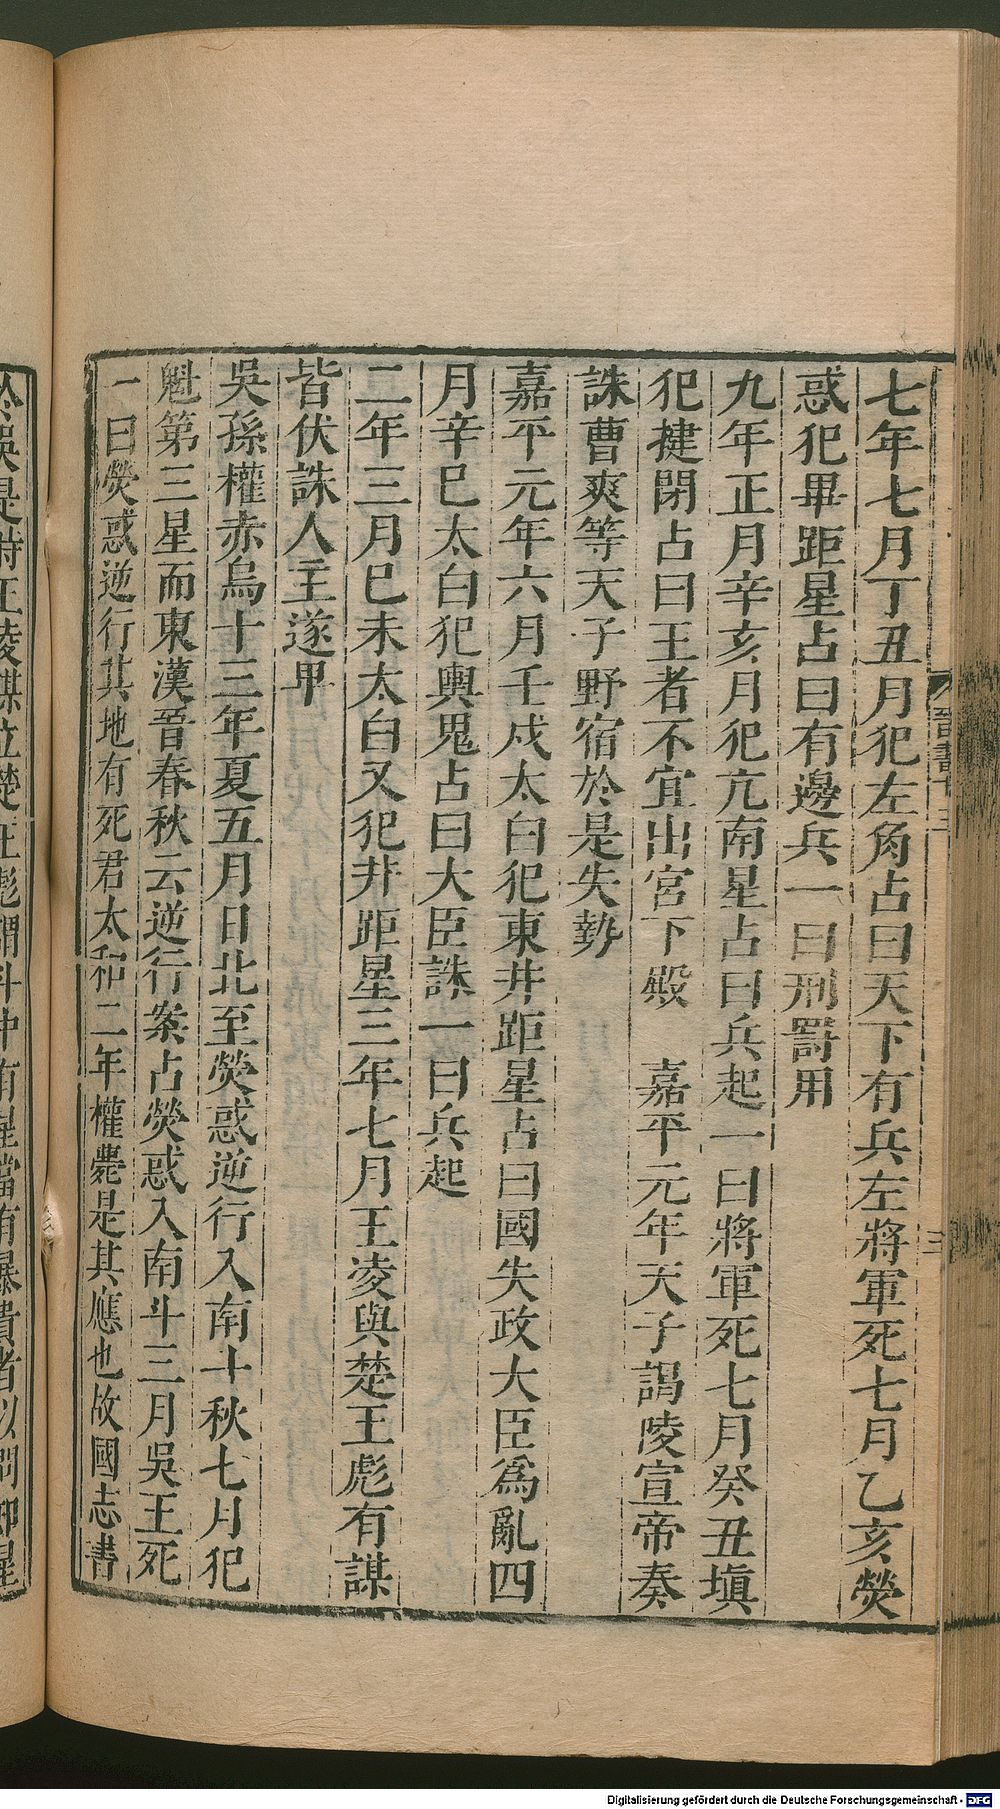 七年七月丁丑月犯左角占曰天下有兵左將軍死七月乙亥熒
惑犯畢距星占曰有邊兵一曰刑罰用
九年正月辛亥月犯亢南星占曰兵起一曰將軍死七月癸丑塡
犯揵閉占曰王者不宜出宮下殿　嘉平元年天子謁陵宣帝奏
誅曹爽等天子野宿於是失勢
嘉平元年六月壬戌太白犯東井距星占曰國失政大臣爲亂四
月辛巳太白犯輿鬼占曰大臣誅一曰兵起
二年三月巳未太白又犯井距星三年七月王凌與楚王彪有謀
皆伏誅人主遂卑
吳孫權赤烏十三年夏五月日北至熒惑逆行入南斗秋七月犯
魁第三星而東漢晉春秋云逆行案占熒惑入南斗三月吳王死
一曰熒惑逆行其地有死君太和二年權薨是其應也故國志書
於吳是時王凌謀立楚王彪謂斗中有星當有暴貴者以問知星
晉書十三
三
Digitalisierung gefördert durch die Deutsche Forschungsgemeinschaft - DFG